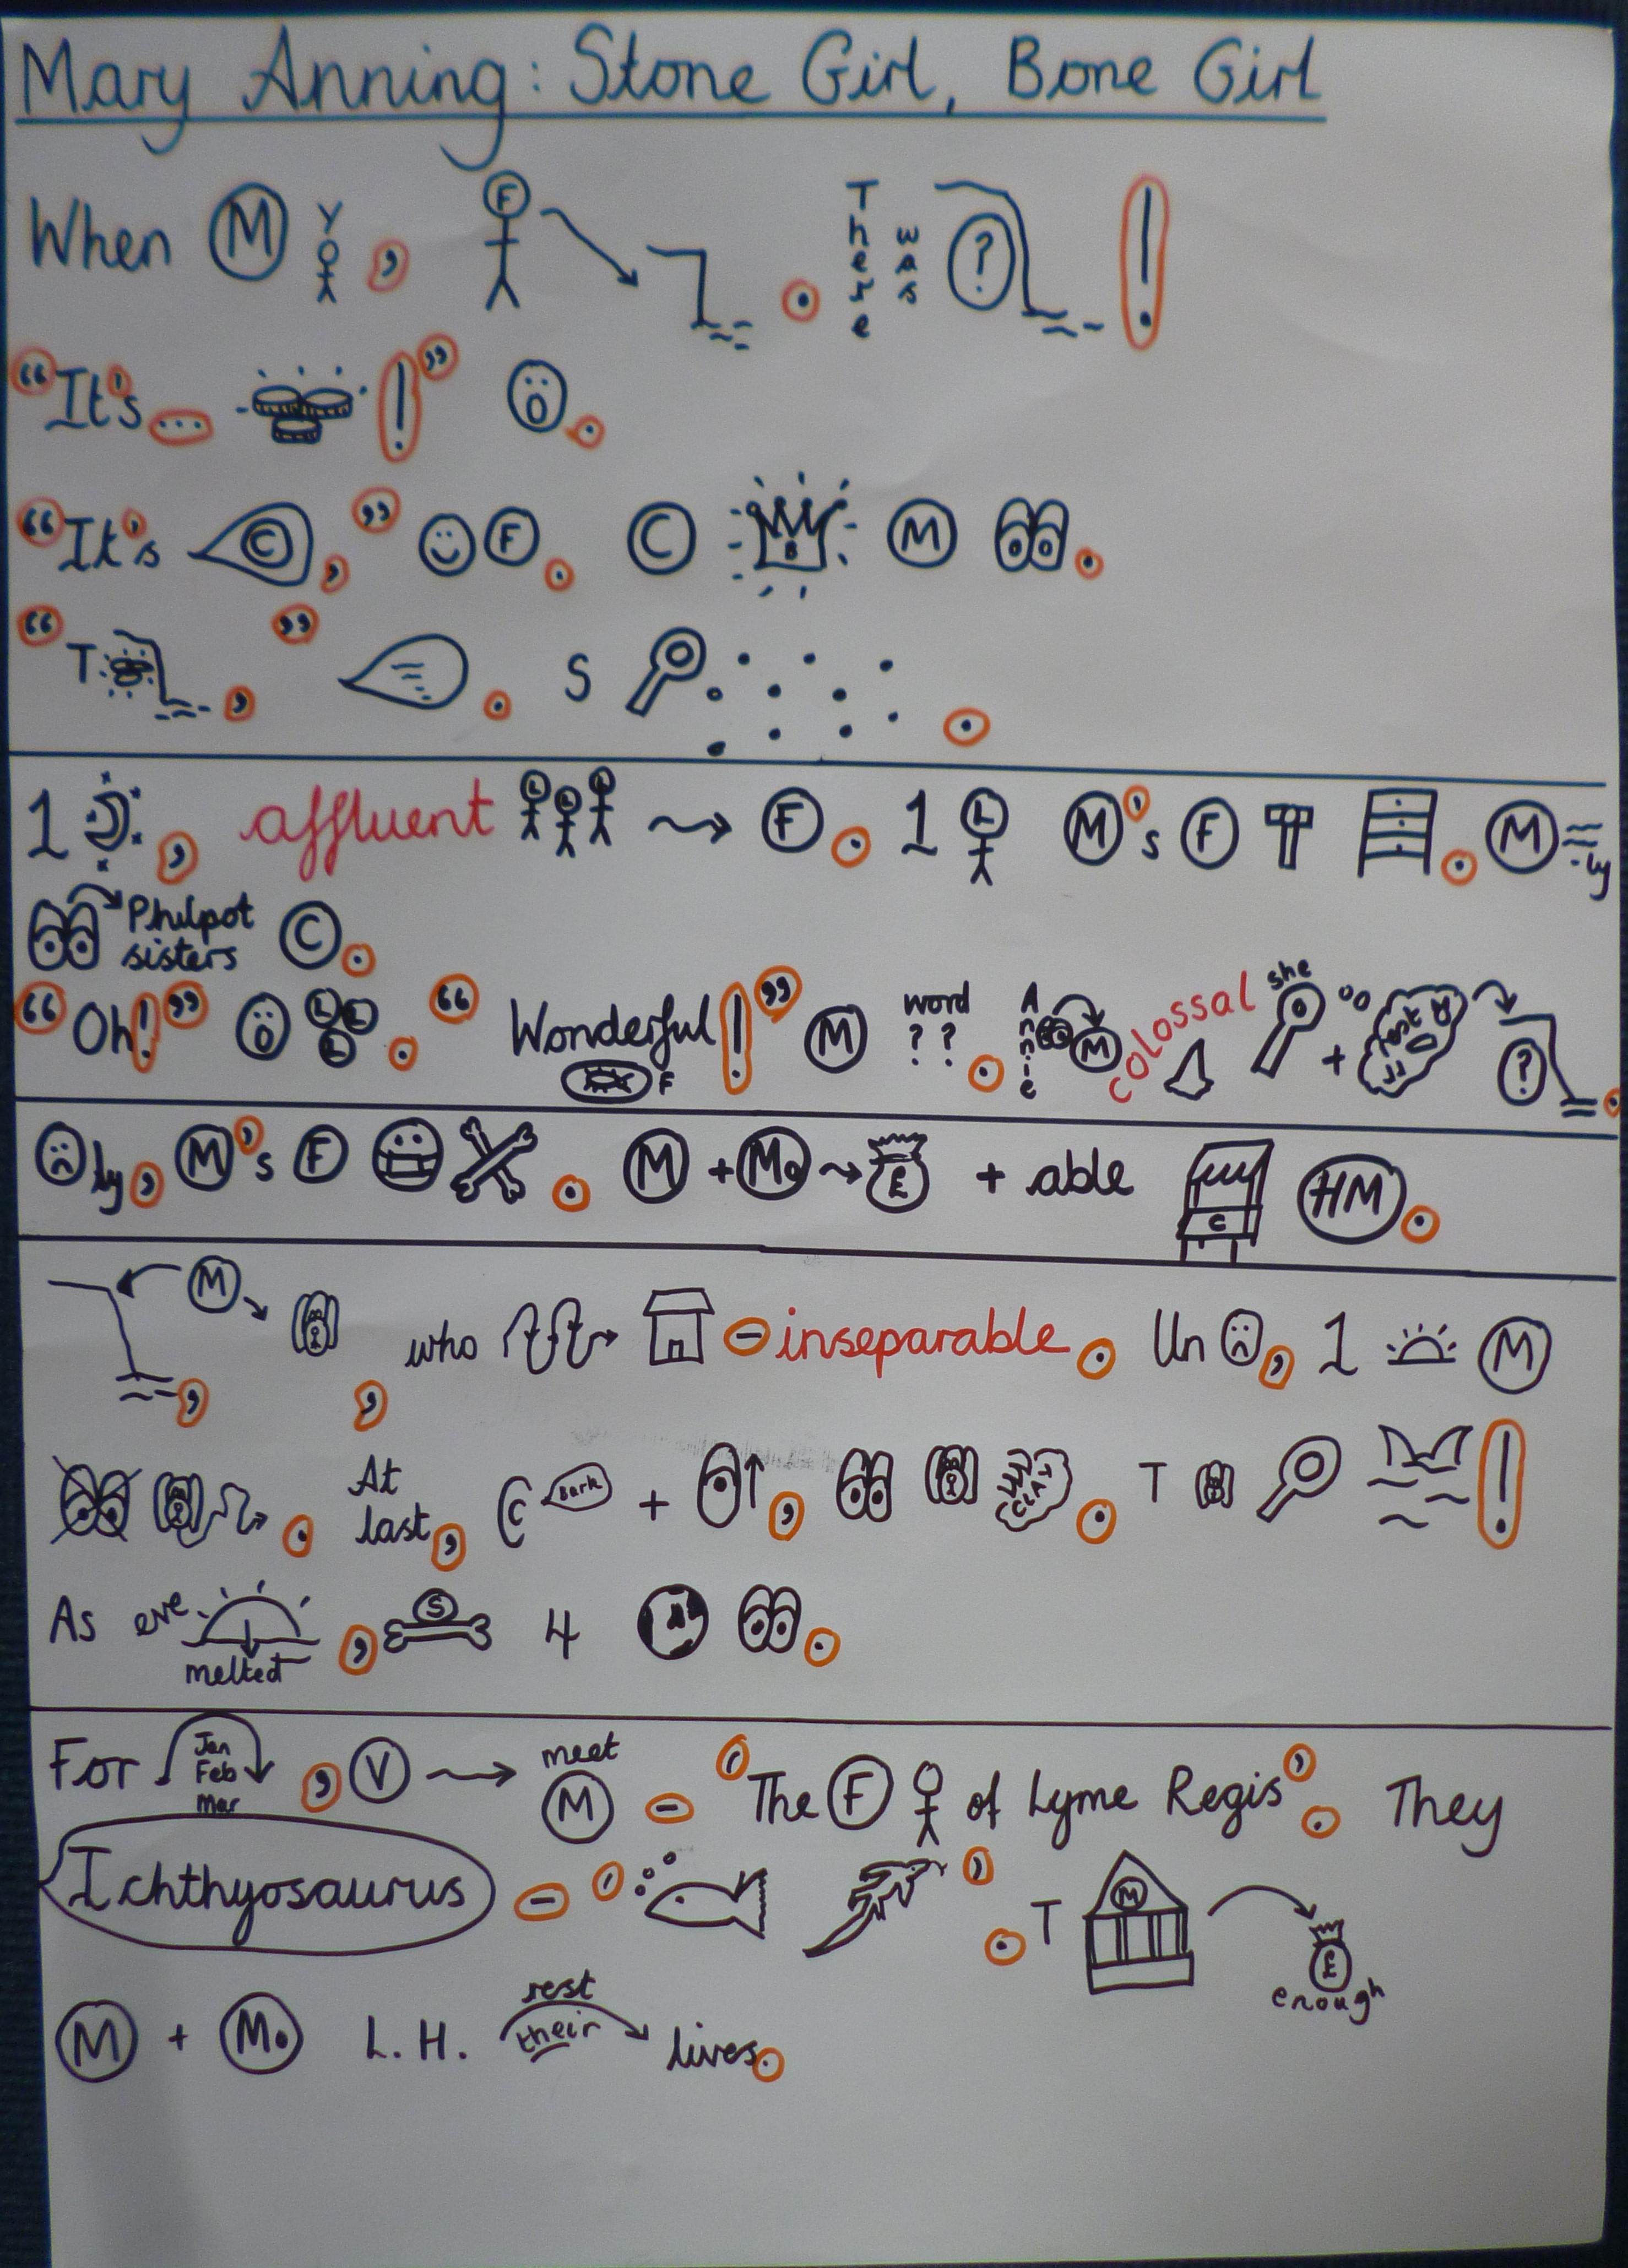 Mary Anning: Stone Girl, Bone Girl
When M Y , F . There was ? !
"It's... !" .
"It's C," F. C B M .
"T ," . S .
1 , affluent L L L F. 1 L M's F . M -ly
Philpot sisters C.
"Oh!" L L L. "Wonderful F!" M word ? ?. Annie M colossal she + ? .
ly, M's F . M + Mo £ + able C HM.
M , , who - inseparable. Un , 1 M
. At last, C Bark + , CLAY . T !
As eve melted , S 4 .
For Jan Feb mar , V meet M - 'The F of Lyme Regis'. They
Ichthyosaurus - ' '. T M £ enough
M + Mo L.H. rest their lives.